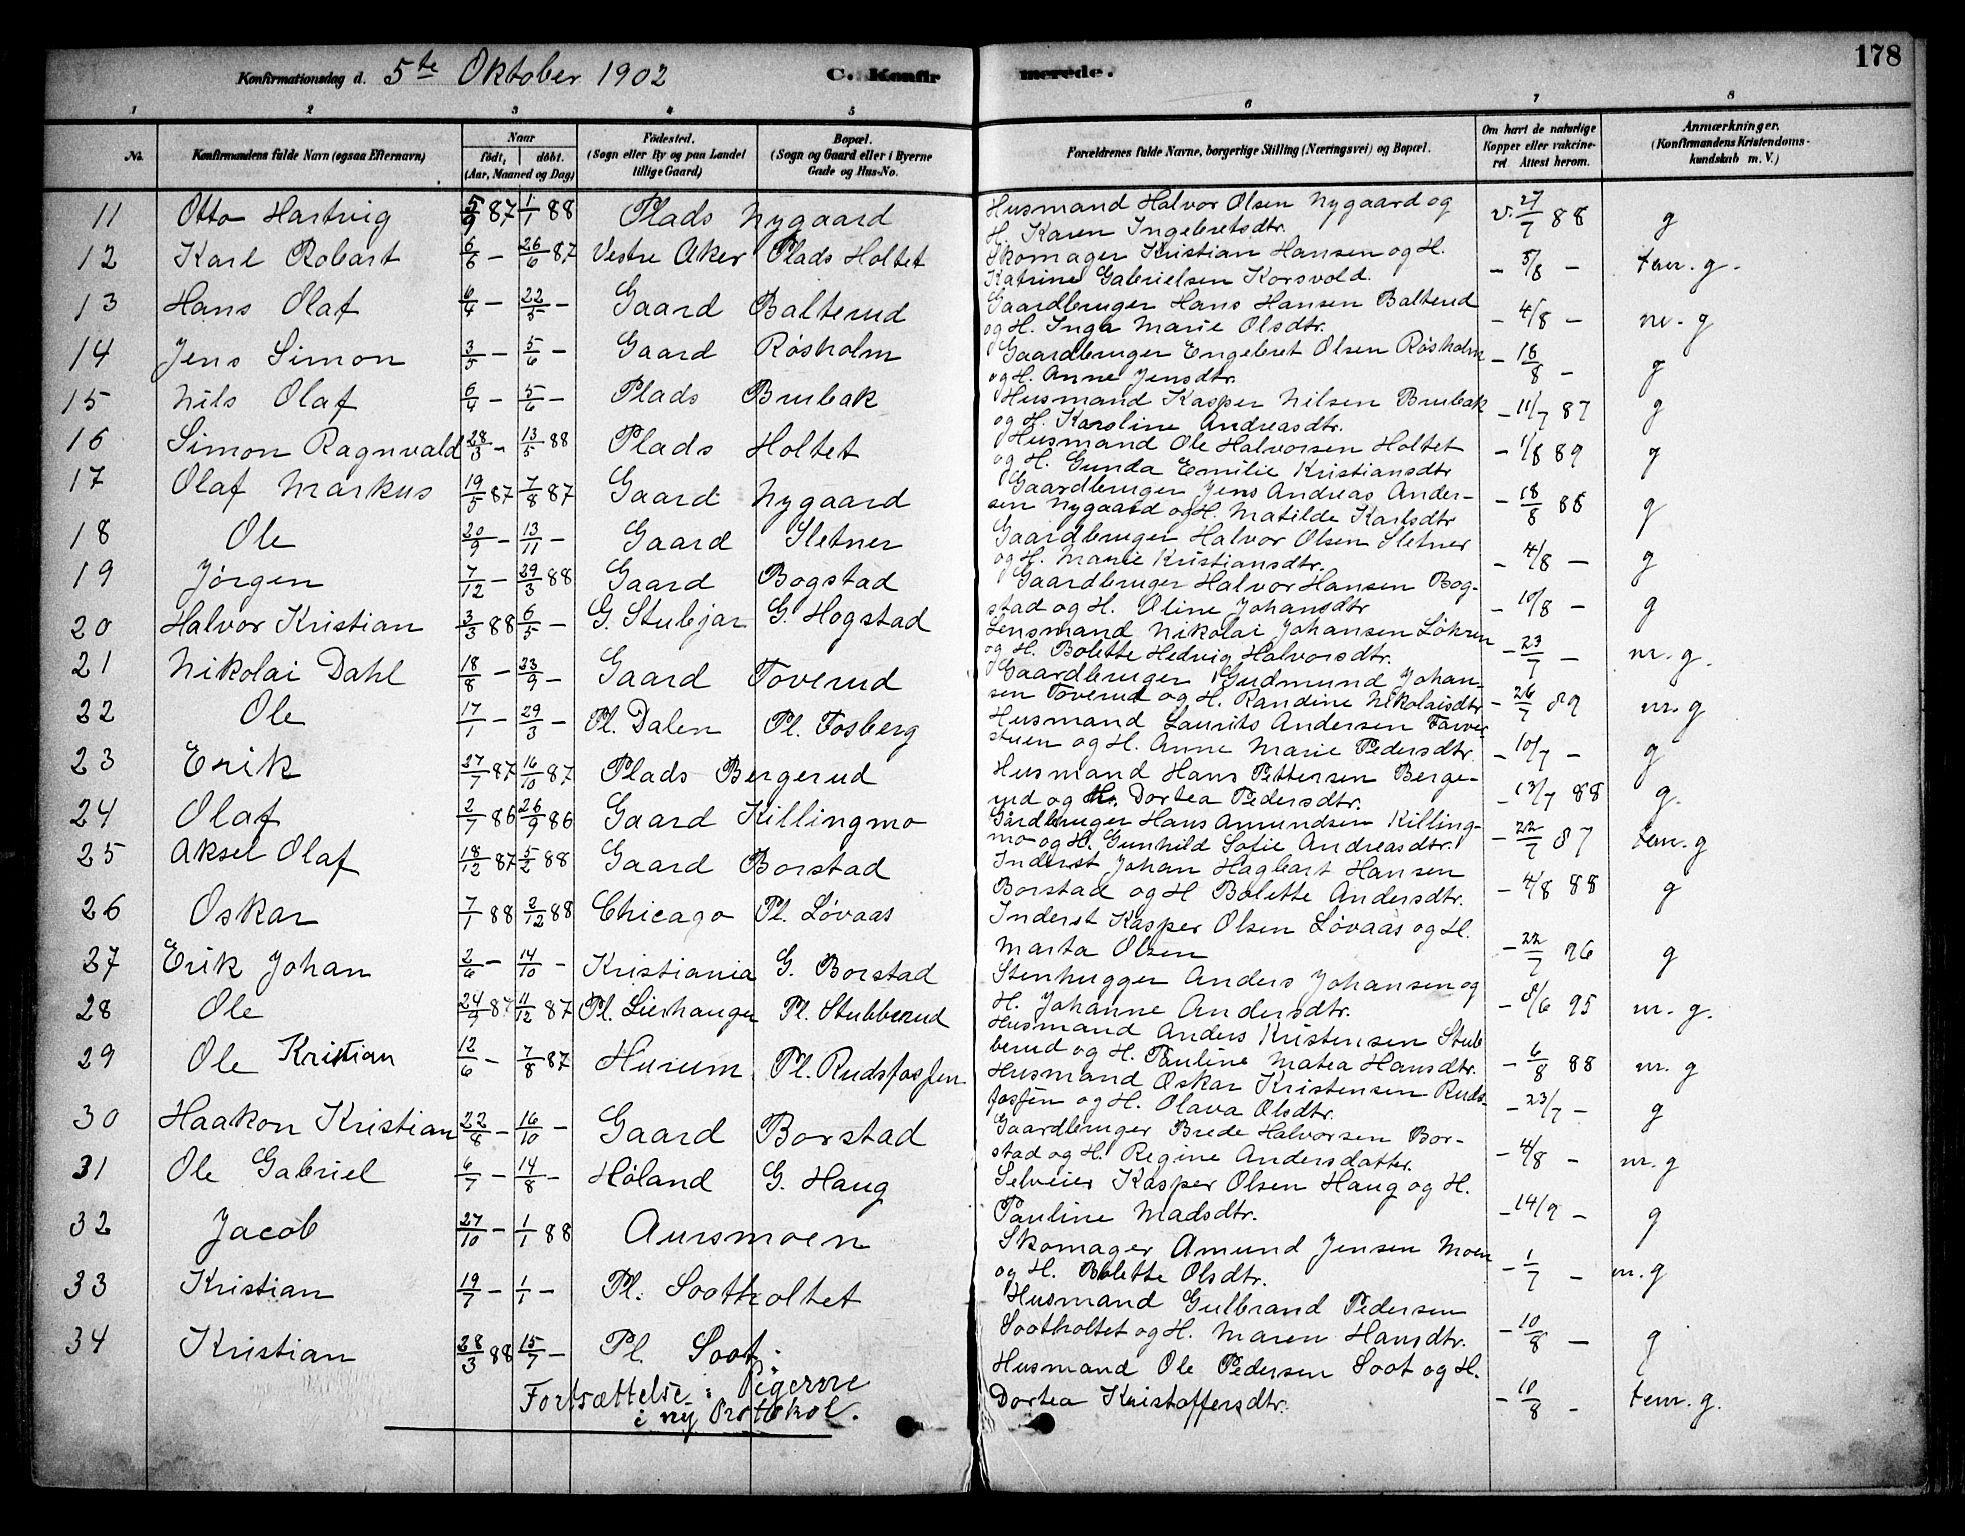 178
Konfirmationsdag d. 5te Oktober 1902 C. Konfirmerede.
1 2 3 4 5 6 7 8
No. Konfirmandens fulde Navn (ogsaa Efternavn) Naar født, døbt. (Aar, Maaned og Dag) Fødested. (Sogn eller By og paa Landet tillige Gaard) Bopæl. (Sogn og Gaard eller i Byerne Gade og Hus-No. Forældrenes fulde Navne, borgerlige Stilling (Næringsvei) og Bopæl. Om havt de naturlige Kopper eller vakcineret. Attest herom. Anmærkninger. (Konfirmandens Kristendomskundskab m. V.)
11 Otto Hartvig 5/9 87 1/1 88 Plads Nygaard Husmand Halvor Olsen Nygaard og
H. Karen Ingebretsdtr. v. 27/7 88 g
12 Karl Robart 6/6 — 26/6 87 Vestre Aker Plads Holtet Skomager Kristian Hansen og H.
Katrine Gabrielsen Korsvold. — 5/8 — tem. g.
13 Hans Olaf 6/4 — 22/5 — Gaard Balterud Gaardbruger Hans Hansen Balterud
og H. Inga Marie Olsdtr. — 4/8 — m. g
14 Jens Simon 3/5 — 5/6 — Gaard Røsholm Gaardbruger Engebret Olsen Røsholm
og H. Anne Jensdtr. — 18/8 — g
15 Nils Olaf 6/4 — 5/6 — Plads Brubak Husmand Kasper Nilsen Brubak
og H. Karoline Andreasdtr. — 11/7 87 g
16 Simon Ragnvald 28/3 — 13/5 88 Plads Holtet Husmand Ole Halvorsen Holtet
og H. Gunda Emilie Kristiansdtr — 1/8 89 g
17 Olaf Markus 19/5 87 7/8 87 Gaard Nygaard Gaardbruger Jens Andreas Ander-
sen Nygaard og H. Matilde Karlsdtr — 18/8 88 g
18 Ole 20/9 — 13/11 — Gaard Sletner Gaardbruger Halvor Olsen Sletner
og H. Marie Kristiansdtr. — 4/8 — g
19 Jørgen 7/12 — 29/3 88 Gaard Bogstad Gaardbruger Halvor Hansen Bog-
stad og H. Oline Johansdtr — 10/8 — g
20 Halvor Kristian 3/3 88 6/5 — G. Stubjar G. Hogstad Lensmand Nikolai Johansen Løkren
og H. Bolette Hedvig Halvorsdtr. — 23/7 — m. g.
21 Nikolai Dahl 18/8 — 23/9 — Gaard Toverud Gaardbruger Gudmund Johan-
sen Toverud og H. Randine Nikolaisdtr — 26/7 89 m. g
22 Ole 17/1 — 29/3 — Pl. Dalen Pl. Fosberg Husmand Laurits Andersen
og H. Anne Marie Pedersdtr. — 10/7 — g
23 Erik 27/7 87 16/10 87 Plads Bergerud Husmand Hans Pettersen Berge-
rud og H. Dortea Pedersdtr. — 13/7 88 g.
24 Olaf 2/7 86 26/9 86 Gaard Killingmo Gårdbruger Hans Amundsen Killing-
mo og H. Gunhild Sofie Andreasdtr. — 22/7 87 tem. g
25 Aksel Olaf 18/12 87 5/2 88 Gaard Borstad Inderst Johan Hagbart Hansen
Borstad og H Bolette Andersdtr. — 4/8 88 g
26 Oskar 7/1 88 2/12 88 Chicago Pl. Løvaas Inderst Kasper Olsen Løvaas og H.
Marta Olsen — 22/7 96 g
27 Erik Johan 2/6 — 14/10 — Kristiania G. Borstad Stenhugger Anders Johansen og
H. Johanne Andersdtr. — 8/6 95 m. g.
28 Ole 24/9 87 11/12 87 Pl. Lierhaugen Pl. Stubberud Husmand Anders Kristensen Stub
berud og H. Pauline Matea Hansdtr. — 6/8 88 m. g
29 Ole Kristian 12/6 — 7/8 87 Hurum Pl. Rudsfosfen Husmand Oskar Kristensen Ruds-
fosfen og H. Olava Olsdtr. — 23/7 — g
30 Haakon Kristian 22/8 — 16/10 — Gaard Borstad Gaardbruger Brede Halvorsen Bor-
stad og H. Regine Andersdatter. — 4/8 — m. g
31 Ole Gabriel 6/7 — 14/8 — Høland G. Haug Selveier Kasper Olsen Haug og H.
Pauline Madsdtr. — 14/9 — g
32 Jacob 27/10 — 1/1 88 Aursmoen Skomager Amund Jensen Moen
og H. Bolette Olsdtr. — 1/7 — m. g
33 Kristian 19/7 — 1/1 — Pl. Sootholtet Husmand Gulbrand Pedersen
Sootholtet og H. Maren Hansdtr. — 10/8 — g
34 Kristian 28/3 88 15/7 — Pl. Soot Husmand Ole Pedersen Soot og H.
Dortea Kristoffersdtr. — 10/8 — tem. g.
Fortsættelse: Pigerne
i ny Protokol.